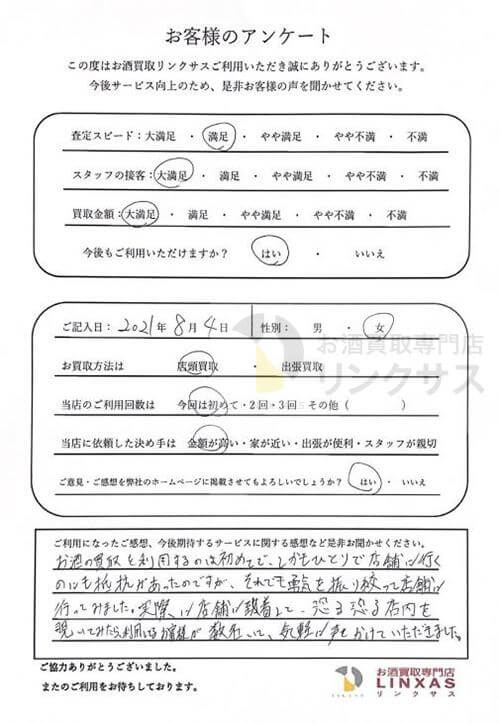 お客様のアンケート
この度はお酒買取リンクサスご利用いただき誠にありがとうございます。
今後サービス向上のため、是非お客様の声を聞かせてください。
査定スピード：大満足 ・ 満足 ・ やや満足 ・ やや不満 ・ 不満
スタッフの接客：大満足 ・ 満足 ・ やや満足 ・ やや不満 ・ 不満
買取金額：大満足 ・ 満足 ・ やや満足 ・ やや不満 ・ 不満
今後もご利用いただけますか？ はい ・ いいえ
ご記入日：2021年 8月 4日 性別： 男 ・ 女
お酒買取専門店
リンクサス
お買取方法は 店頭買取 ・ 出張買取
当店のご利用回数は 今回は初めて・2回・3回 その他（ ）
当店に依頼した決め手は 金額が高い・家が近い・出張が便利・スタッフが親切
ご意見・ご感想を弊社のホームページに掲載させてもよろしいでしょうか？ はい ・ いいえ
ご利用になったご感想、今後期待するサービスに関する感想など是非お聞かせください。
お酒の買取を利用するのは初めてで、しかもひとりで店舗に行く
のにも抵抗があったのですが、それでも勇気を振り絞って店舗に
行ってみました。実際に店舗に到着して、恐る恐る店内を
覗いてみたら、利用してるお客様が数名いて、気軽に声をかけていただきました。
ご協力ありがとうございました。
またのご利用をお待ちしております。
お酒買取専門店
LINXAS
リンクサス